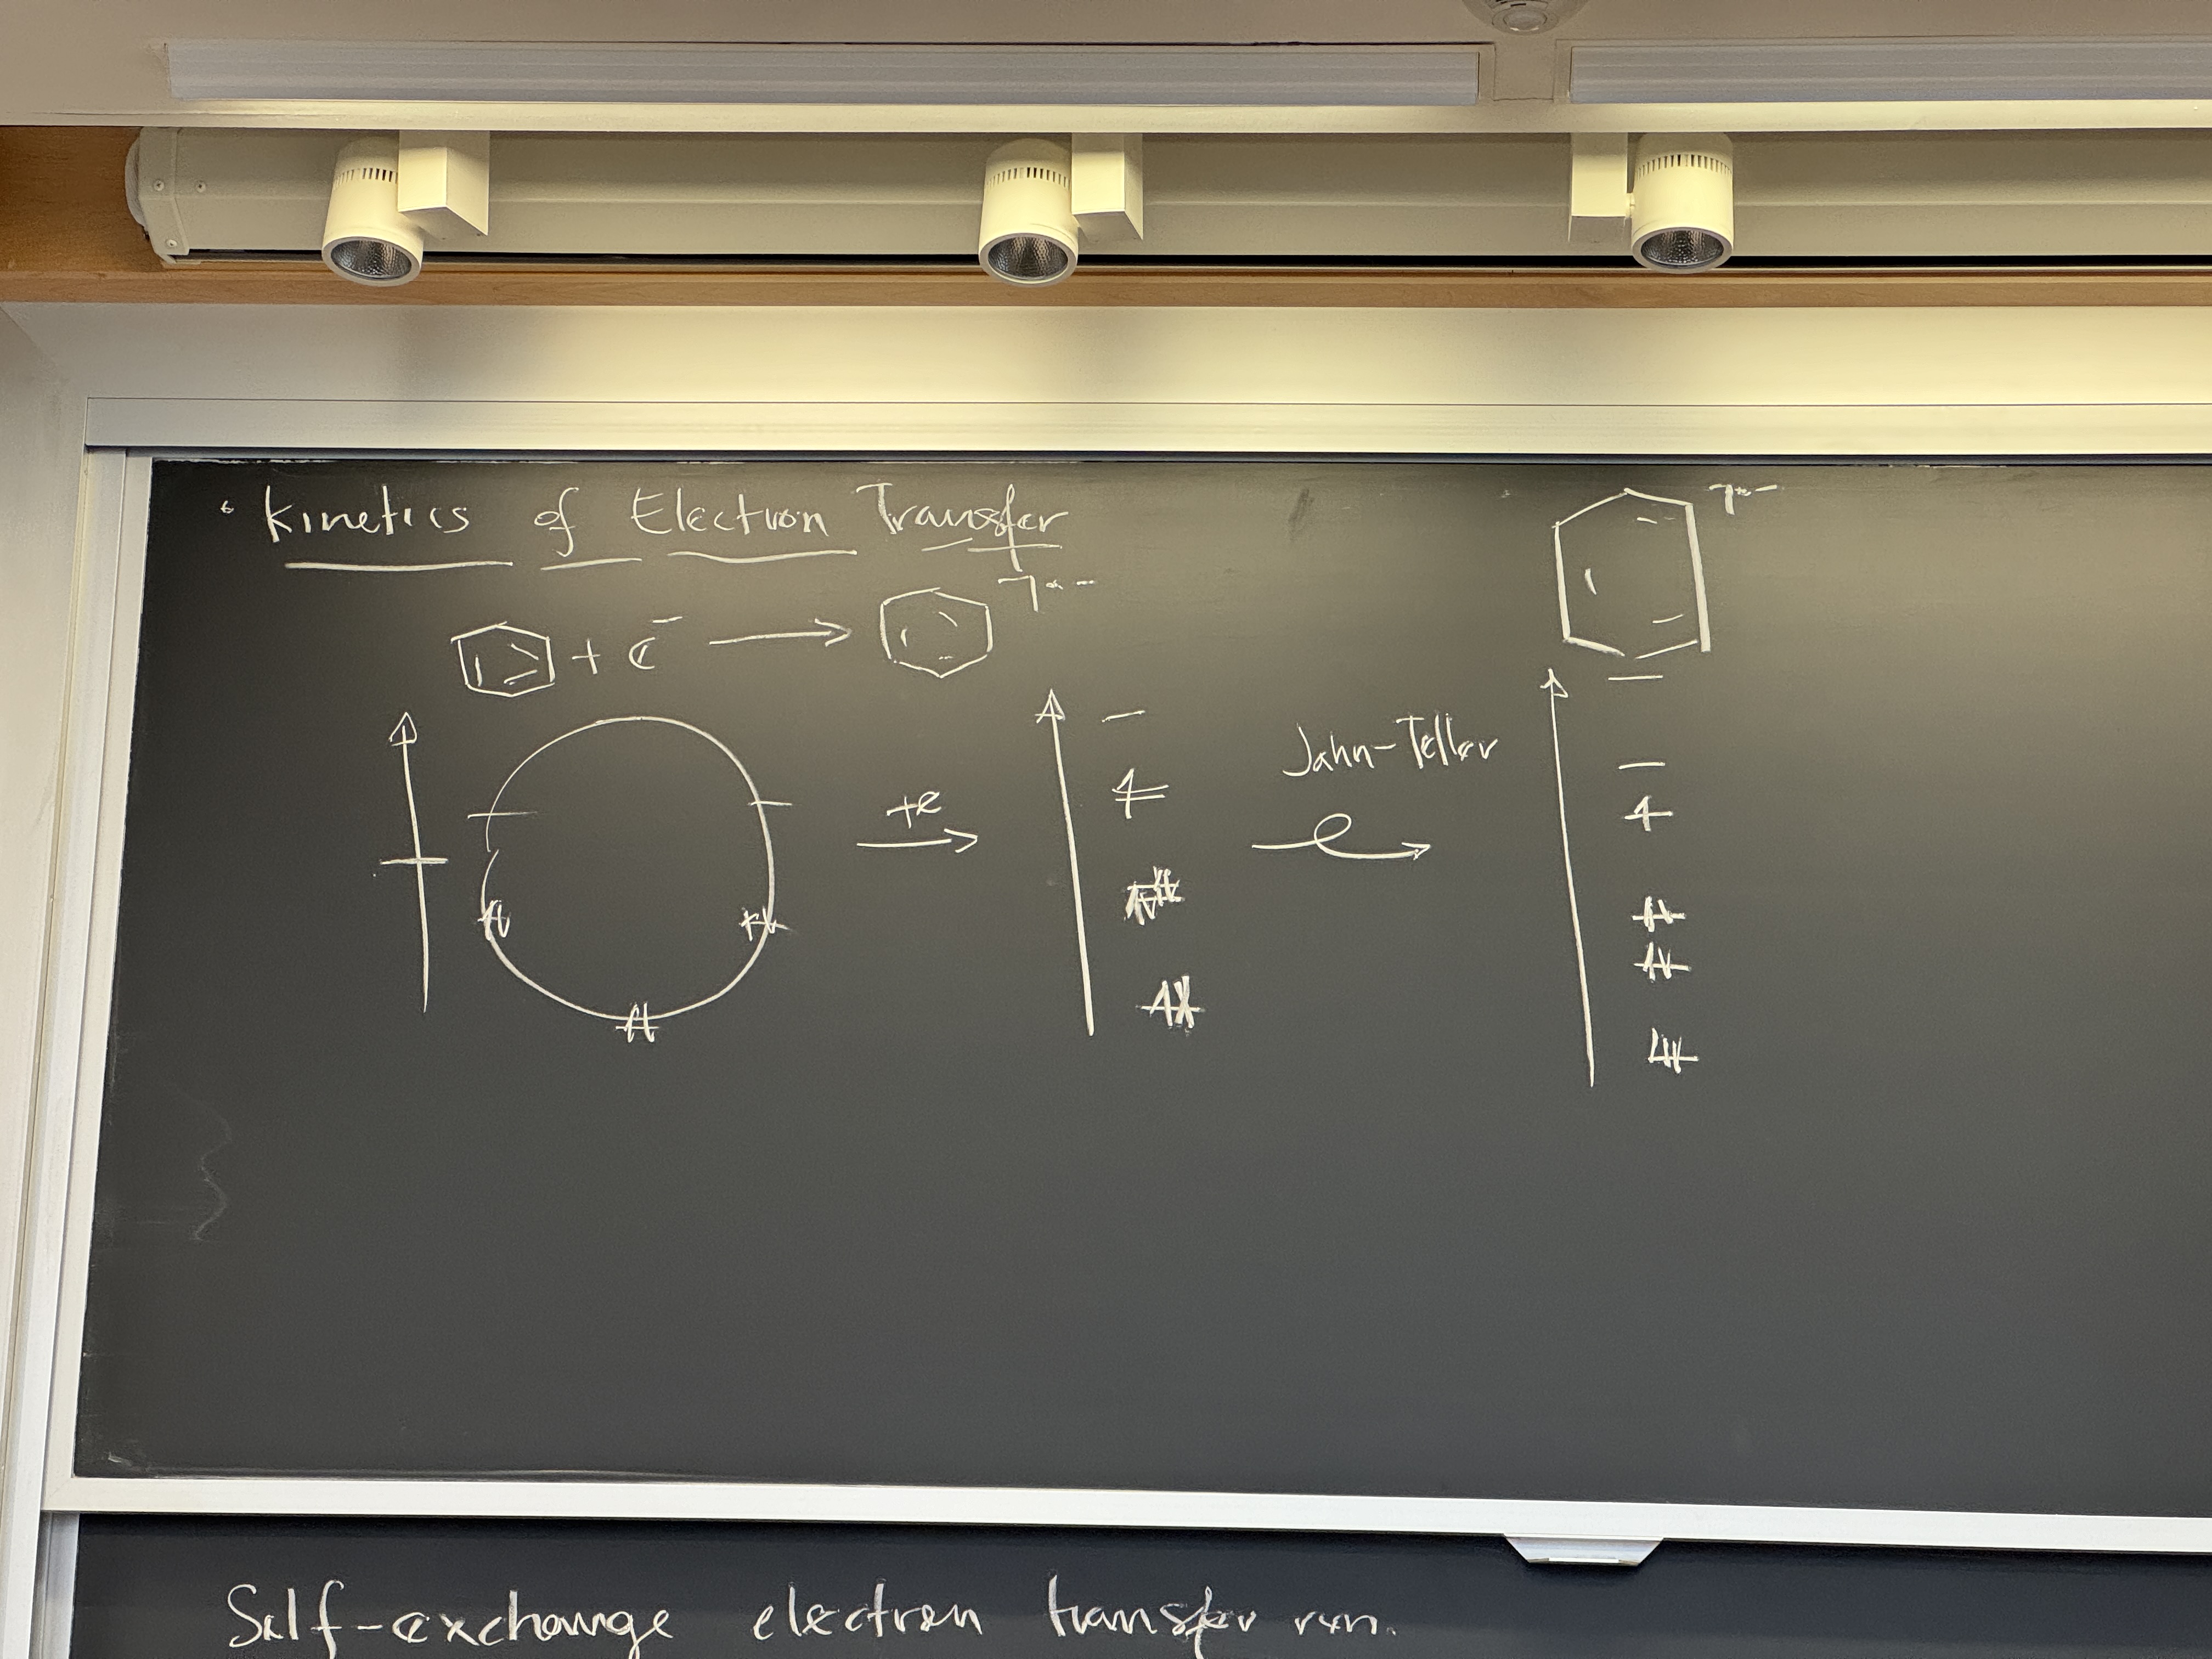 Kinetics of Electron Transfer
+ e⁻ ⟶ ⁻
+e
Jahn-Teller
Self-exchange electron transfer rxn.